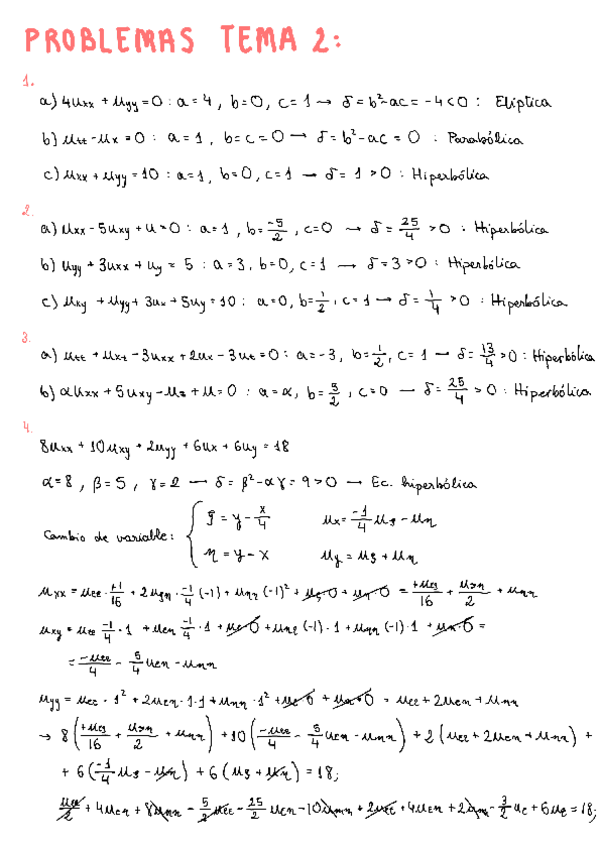 PROBLEMAS TEMA 2:
1.
a) 4uxx + uyy = 0 : a = 4, b = 0, c = 1 → δ = b² - ac = -4 < 0 : Elíptica
b) utt - ux = 0 : a = 1, b = c = 0 → δ = b² - ac = 0 : Parabólica
c) uxx + uyy = 10 : a = 1, b = 0, c = 1 → δ = 1 > 0 : Hiperbólica
2.
a) uxx - 5uxy + u = 0 : a = 1, b = -5/2, c = 0 → δ = 25/4 > 0 : Hiperbólica
b) uyy + 3uxx + uy = 5 : a = 3, b = 0, c = 1 → δ = 3 > 0 : Hiperbólica
c) uxy + uyy + 3ux + 5uy = 10 : a = 0, b = 1/2, c = 1 → δ = 1/4 > 0 : Hiperbólica
3.
a) utt + uxt - 3uxx + 2ux - 3ut = 0 : a = -3, b = 1/2, c = 1 → δ = 13/4 > 0 : Hiperbólica
b) αuxx + 5uxy - uz + u = 0 : a = α, b = 5/2, c = 0 → δ = 25/4 > 0 : Hiperbólica
4.
8uxx + 10uxy + 2uyy + 6ux + 6uy = 18
α = 8, β = 5, γ = 2 → δ = β² - αγ = 9 > 0 → Ec. hiperbólica
Cambio de variable: { ξ = y - x/4 ux = -1/4 uξ - uη
η = y - x uy = uξ + uη
uxx = uξξ · +1/16 + 2uξη · -1/4 (-1) + uηη (-1)² + uξ·0 + uη·0 = +uξξ/16 + uξη/2 + uηη
uxy = uξξ -1/4 · 1 + uξη -1/4 · 1 + uξ·0 + uηξ (-1) · 1 + uηη (-1) · 1 + uη·0 =
= -uξξ/4 - 5/4 uξη - uηη
uyy = uξξ · 1² + 2uξη · 1 · 1 + uηη · 1² + uξ·0 + uη·0 = uξξ + 2uξη + uηη
→ 8(+uξξ/16 + uξη/2 + uηη) + 10(-uξξ/4 - 5/4 uξη - uηη) + 2(uξξ + 2uξη + uηη) +
+ 6(-1/4 uξ - uη) + 6(uξ + uη) = 18;
uξξ/2 + 4uξη + 8uηη - 5/2 uξξ - 25/2 uξη - 10uηη + 2uξξ + 4uξη + 2uηη - 3/2 uξ + 6uξ = 18;